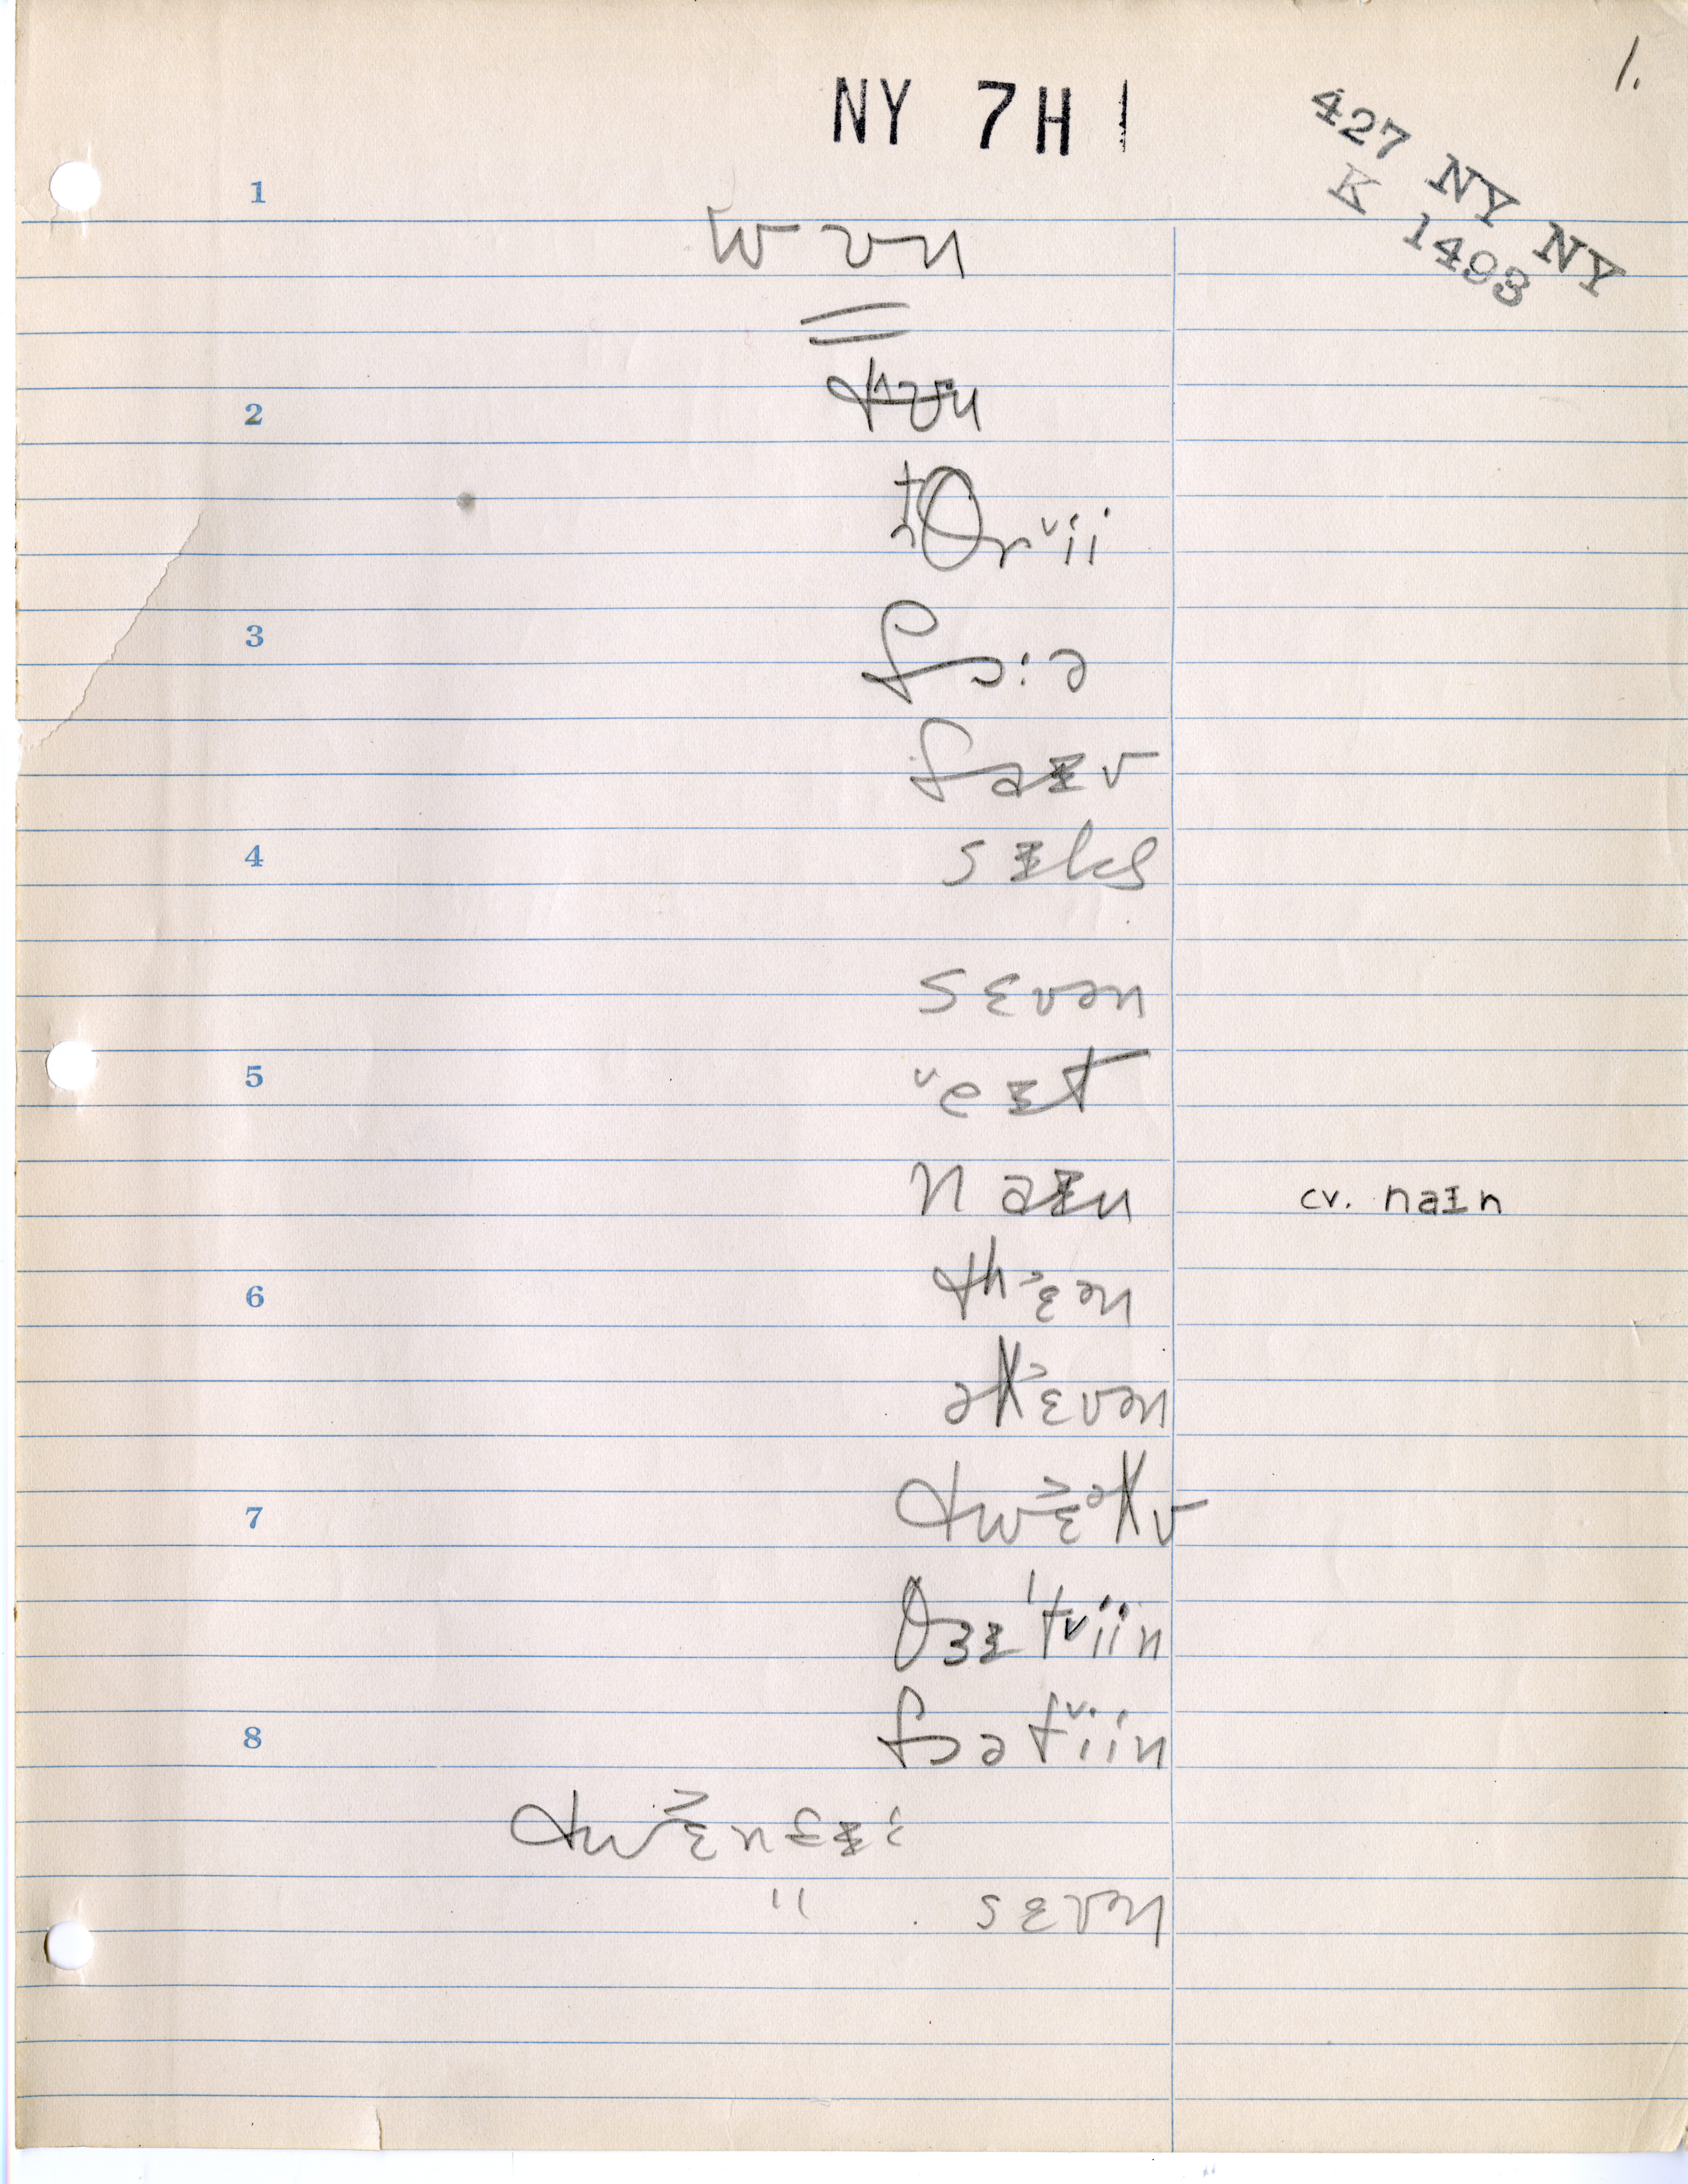 1.
NY 7H 1
427 NY NY
K 1493
1
wʊn
2
θrˇii
3
fɔ:ə
faɪv
4
sɪks
sɛvən
5
ˇeɪt
naɪn
cv. naɪn
6
th˃ɛən
əl˃ɛvən
7
tw˃ɛəlv
θɜɪ'tˇiin
8
fɔətˇiin
tw˃ɛn
" sɛvn